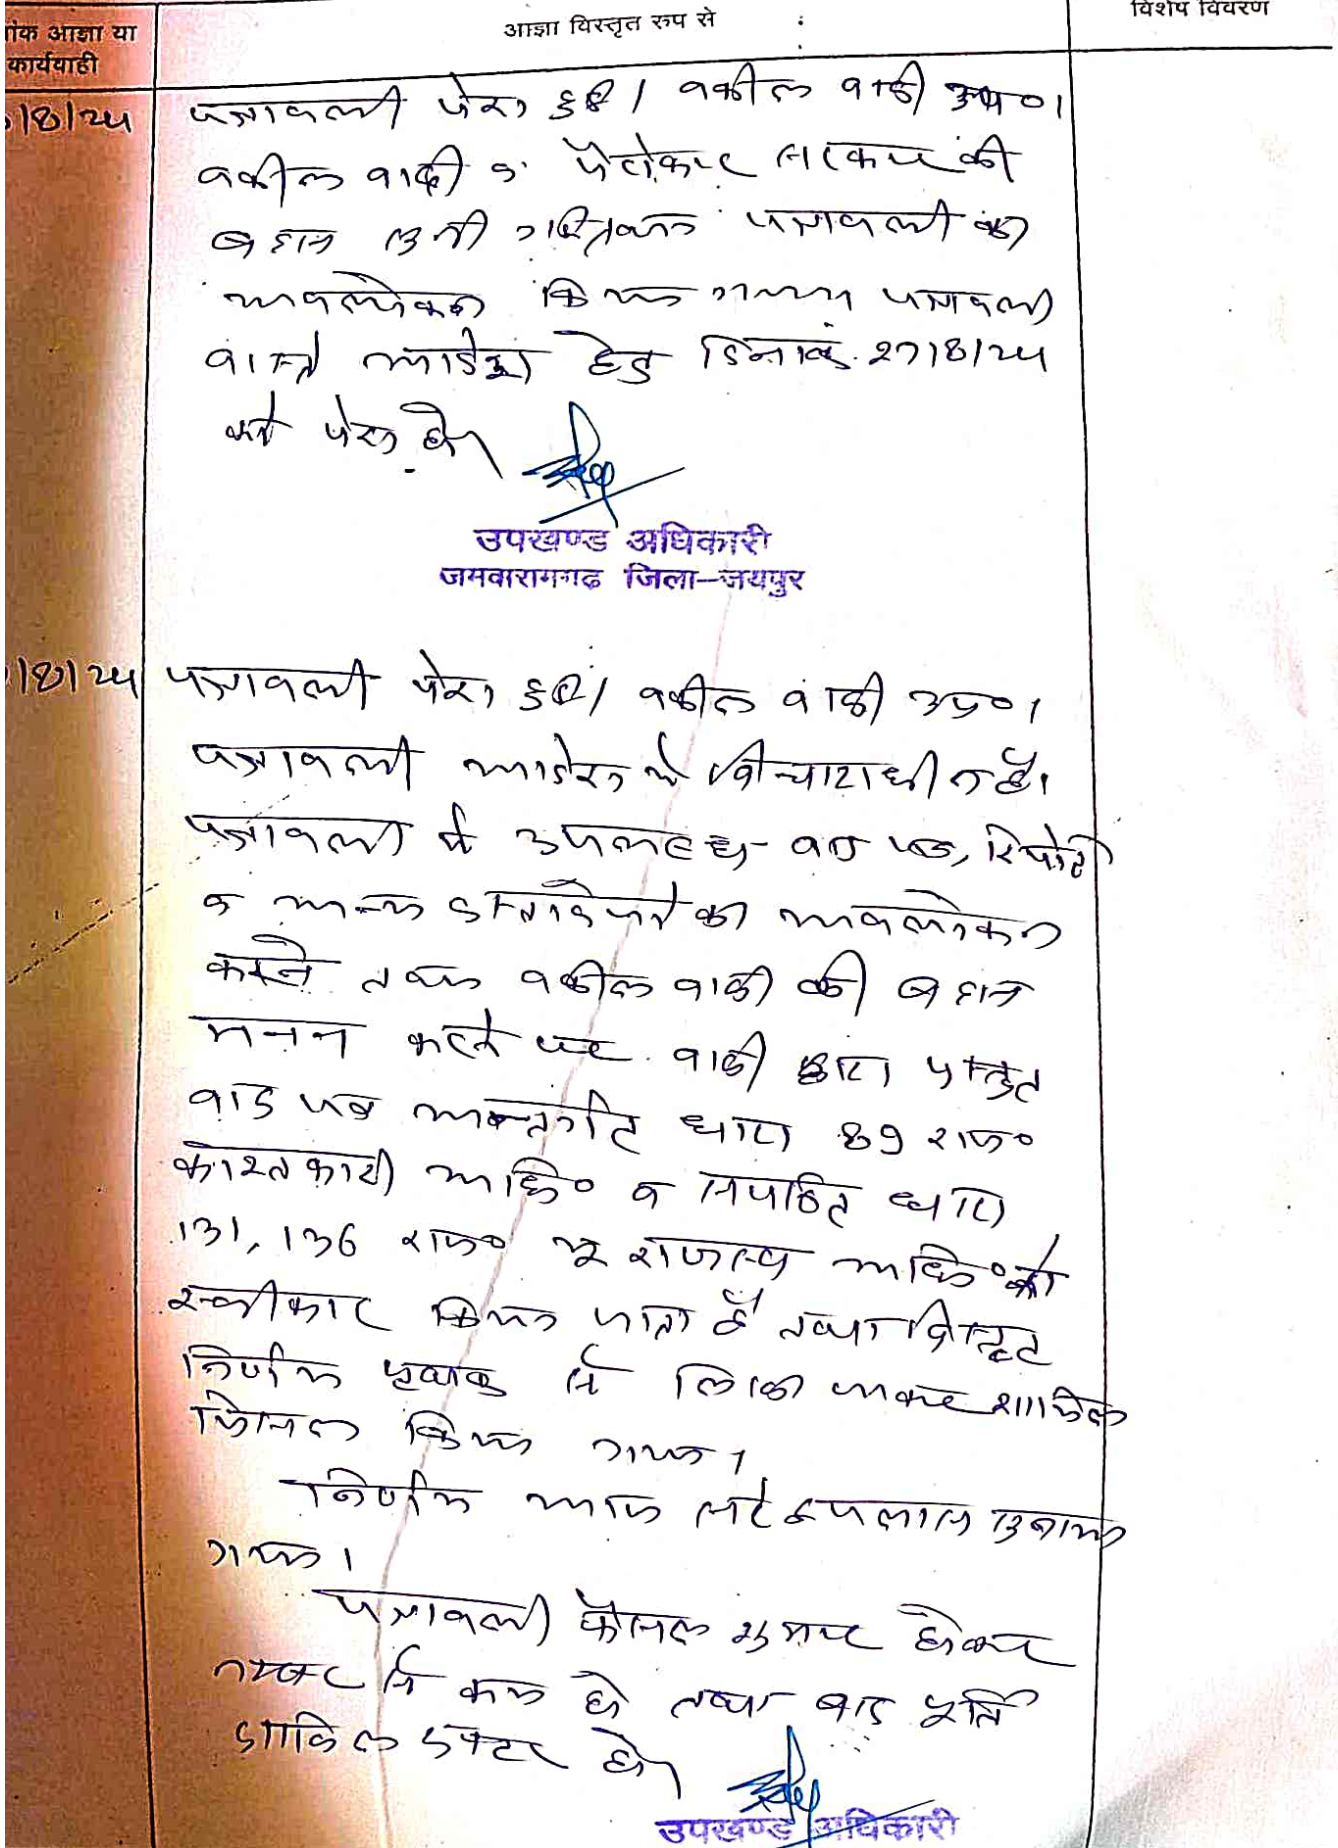 ांक आज्ञा या
कार्यवाही
आज्ञा विस्तृत रुप से :
विशेष विवरण
/8/24
पत्रावली पेश हुई। वकील वादी उप०।
वकील वादी व पैरोकार सरकार की
बहस सुनी गई। पत्रावली का
अवलोकन किया गया। पत्रावली
वास्ते आदेश हेतु दिनांक 27/8/24
को पेश हो।
उपखण्ड अधिकारी
जमवारामगढ जिला-जयपुर
/8/24
पत्रावली पेश हुई। वकील वादी उप०।
पत्रावली आदेश में विचाराधीन है।
पत्रावली में उपलब्ध वाद पत्र, रिपोर्ट
व अन्य दस्तावेजों का अवलोकन
करने तथा वकील वादी की बहस
मनन करने पर वादी द्वारा प्रस्तुत
वाद पत्र अन्तर्गत धारा 89 राज०
काश्तकारी अधि० व सपठित धारा
131, 136 राज० भू राजस्व अधि० को
स्वीकार किया जाता है तथा विस्तृत
निर्णय पृथक से लिखा जाकर शामिल
मिसल किया गया।
निर्णय आज सरे इजलास सुनाया
गया।
पत्रावली फैसल शुमार होकर
नम्बर से कम हो तथा बाद पूर्ति
दाखिल दफ्तर हो।
उपखण्ड अधिकारी